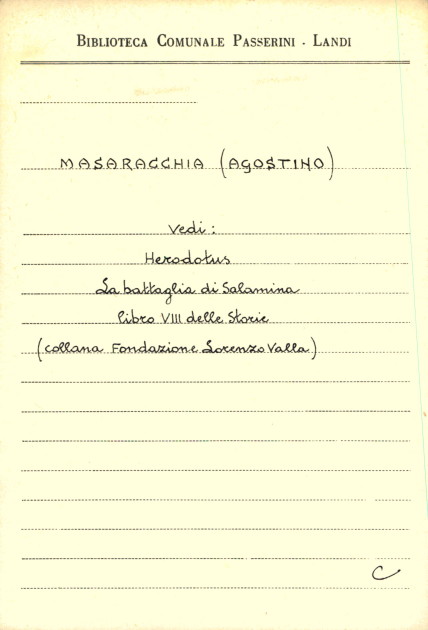 BIBLIOTECA COMUNALE PASSERINI - LANDI
MASARACCHIA (AGOSTINO)
Vedi:
Herodotus
La battaglia di Salamina
libro VIII delle Storie
(collana Fondazione Lorenzo Valla)
C